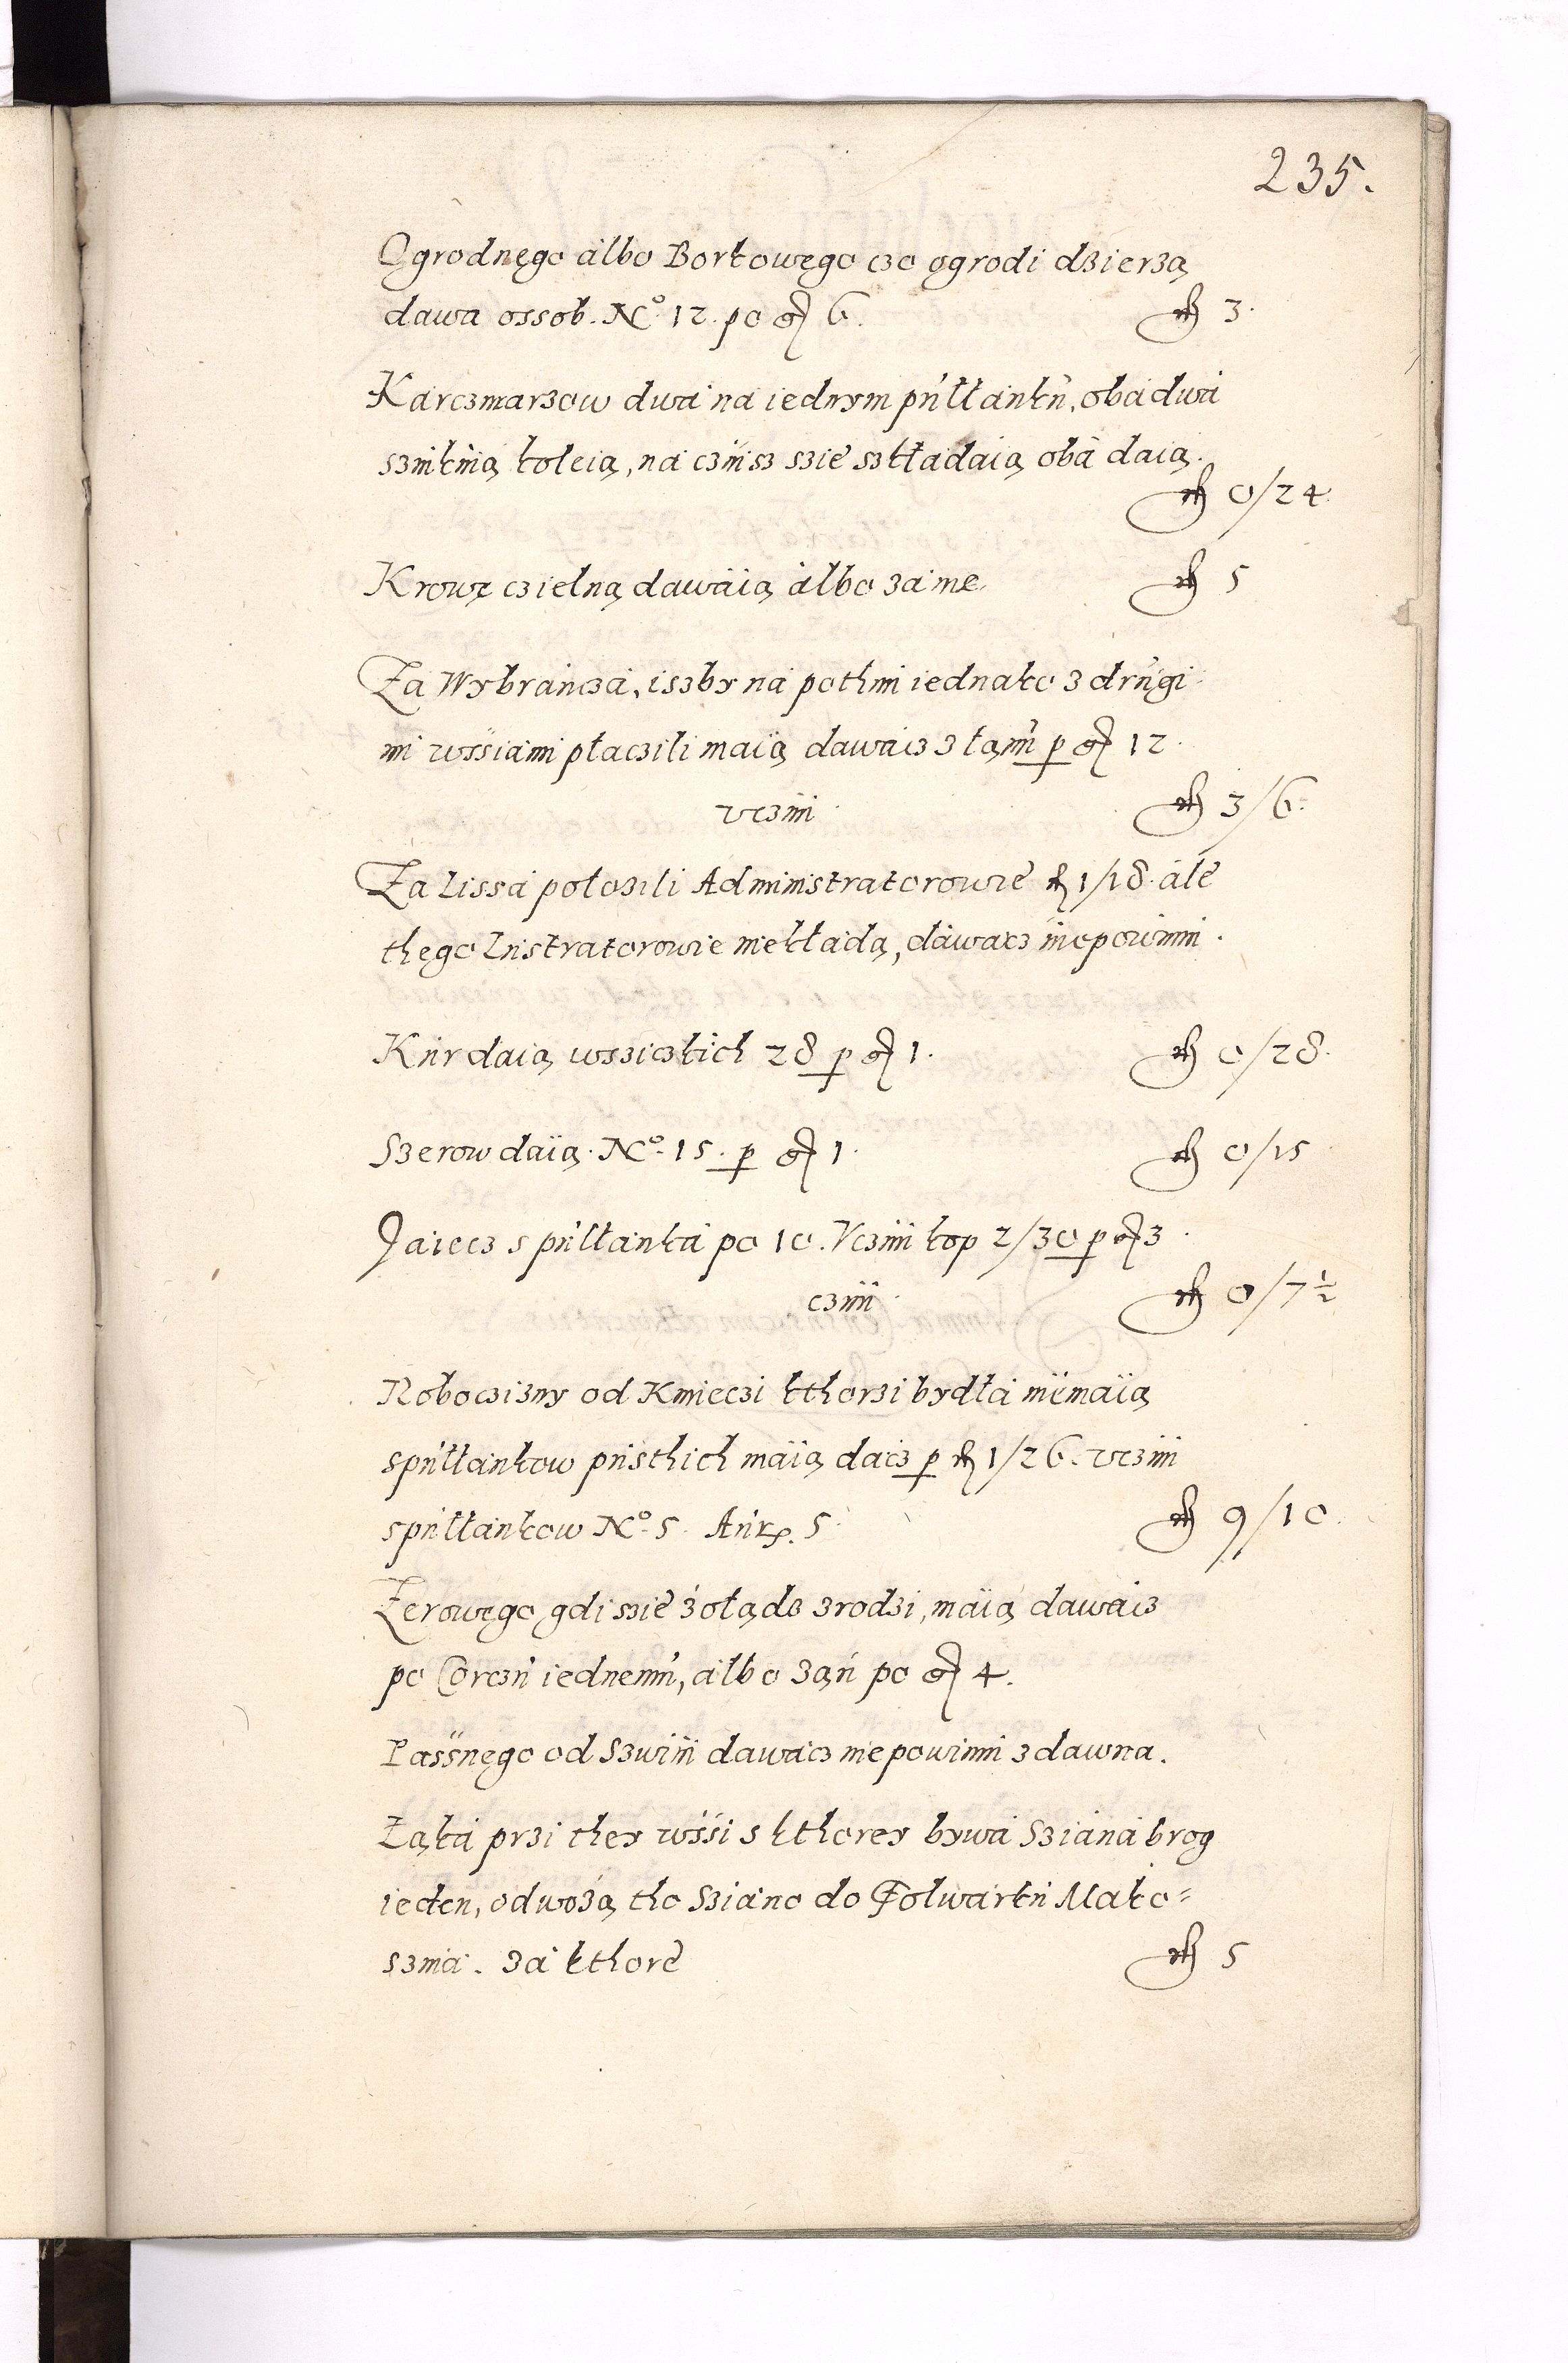 235.
Ogrodnęgo albo Borkowęgo czo ogrodi dzierzą
dawa ossob. No. 12. po gr 6. fl 3.
Karczmarzow dwa na iednym pułłanku, obadwa
szinkuią koleią, na czinsz szie szkładaią oba daią.
fl 0/24.
Krowę czielną dawaią albo za nie fl 5
Za Wybrancza, iszby na pothim iednako z drugi
mi wssiami płaczili maią dawacz z łanu p gr 12.
vczini fl 3/6.
Za Lissa położili Administratorowie fl 1/18. ale
thęgo Lustratorowie niekładą, dawacz niepowinni.
Kur daią wsziczkich 28 p gr 1. fl 0/28.
Szerow daią. No. 15. p gr 1. fl 0/15
Jaiecz s pułłanka po 10. Vczini kop 2/30 p gr 3.
czini fl 0/7½
Roboczizny od Kmieczi kthorzi bydła niemaią
s pułłankow pusthich maią dacz p fl 1/26. vczini
s pułłankow No. 5. Aur. 5. fl 9/10.
Żerowęgo gdi szie żołądz zrodzi, maią dawacz
po Corczu iednemu, albo zań po gr 4.
Passnęgo od Szwini dawacz niepowinni zdawna.
Łąka przi they wssi s kthorey bywa Sziana brog
ieden, odwożą tho Sziano do Folwarku Mako=
szina. za kthore fl 5